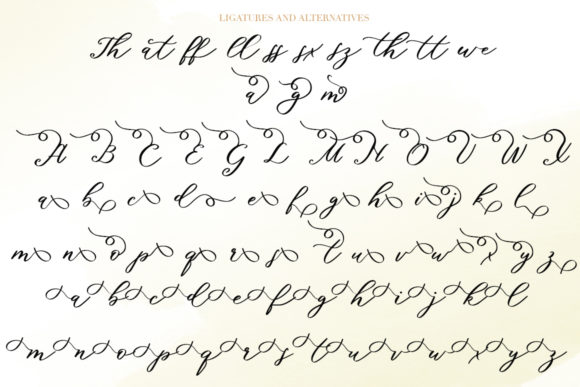 LIGATURES AND ALTERNATIVES
Th at ff ll ss sx sz th tt we
a g m
A B C E G L M N O V W X
a b c d e f g h i j k l
m n o p q r s t u v w x y z
a b c d e f g h i j k l
m n o p q r s t u v w x y z